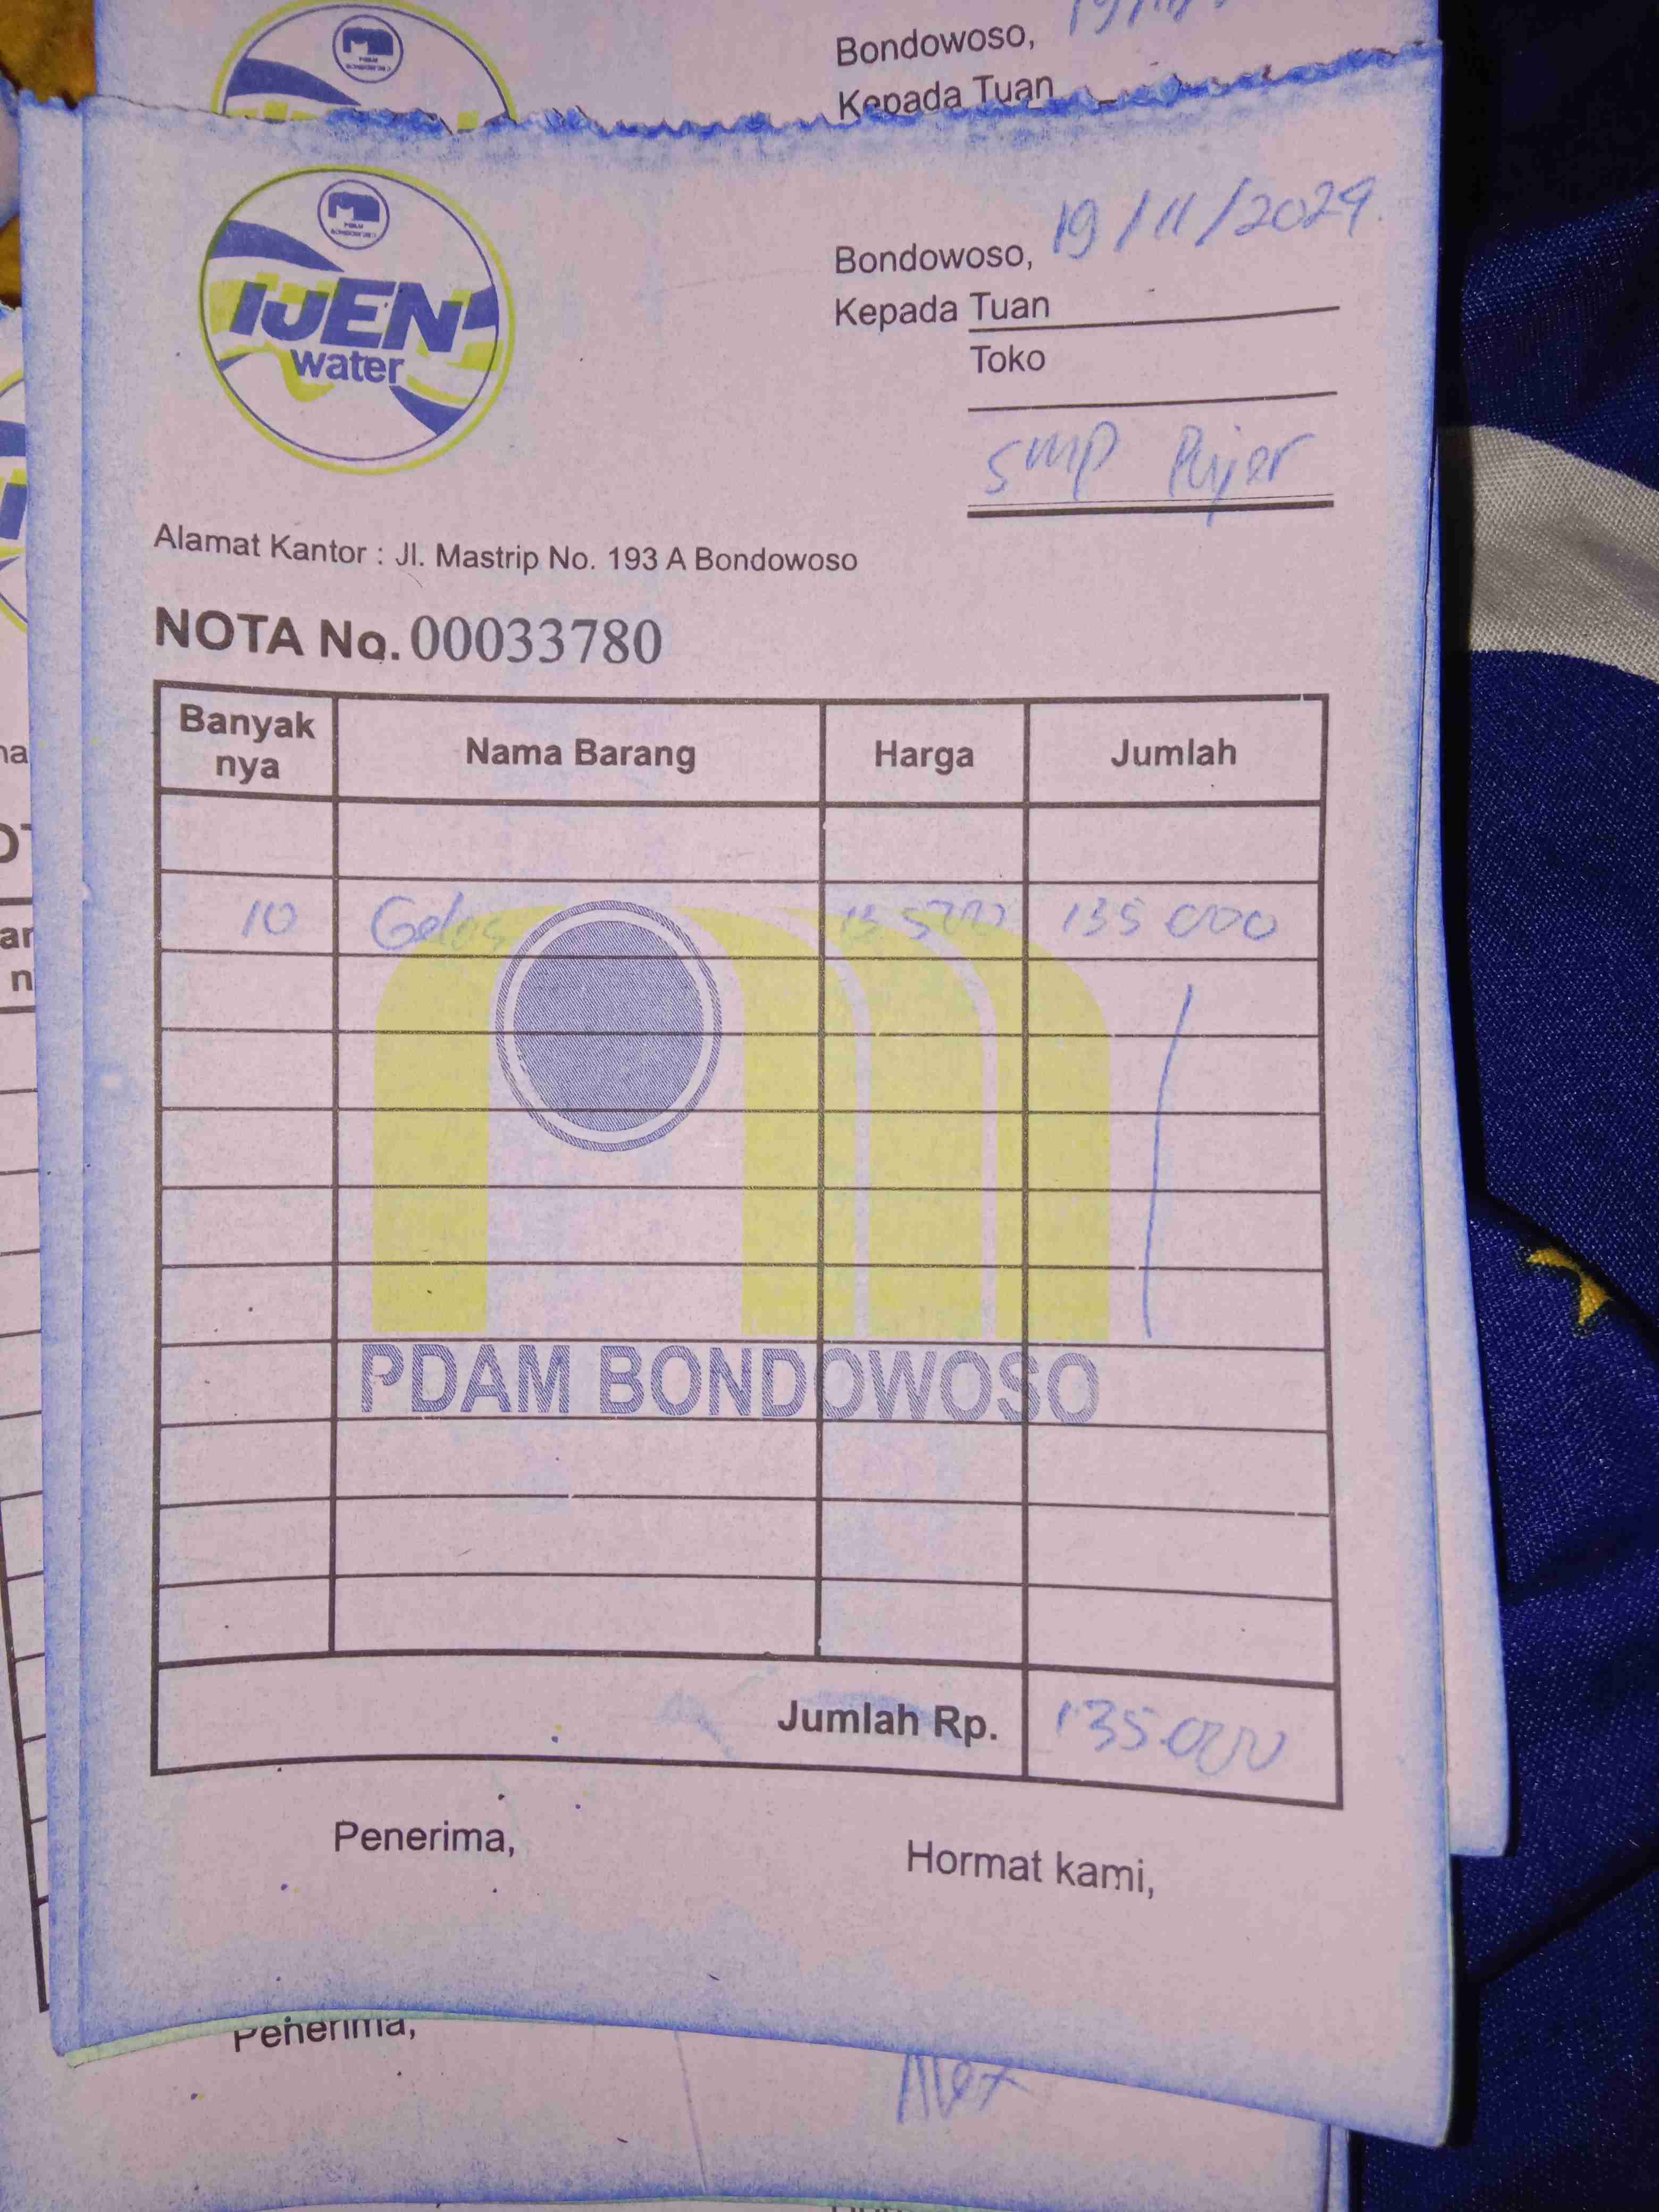 Bondowoso,
Kepada Tuan
PDAM
BONDOWOSO
IJEN
water
Bondowoso, 19/11/2024
Kepada Tuan
Toko
SMP Pujer
Alamat Kantor : Jl. Mastrip No. 193 A Bondowoso
NOTA No. 00033780
Banyak nya Nama Barang Harga Jumlah
10 Gelas 13 500 135 000
PDAM BONDOWOSO
Jumlah Rp. 135.000
Penerima, Hormat kami,
Penerima,
Alex